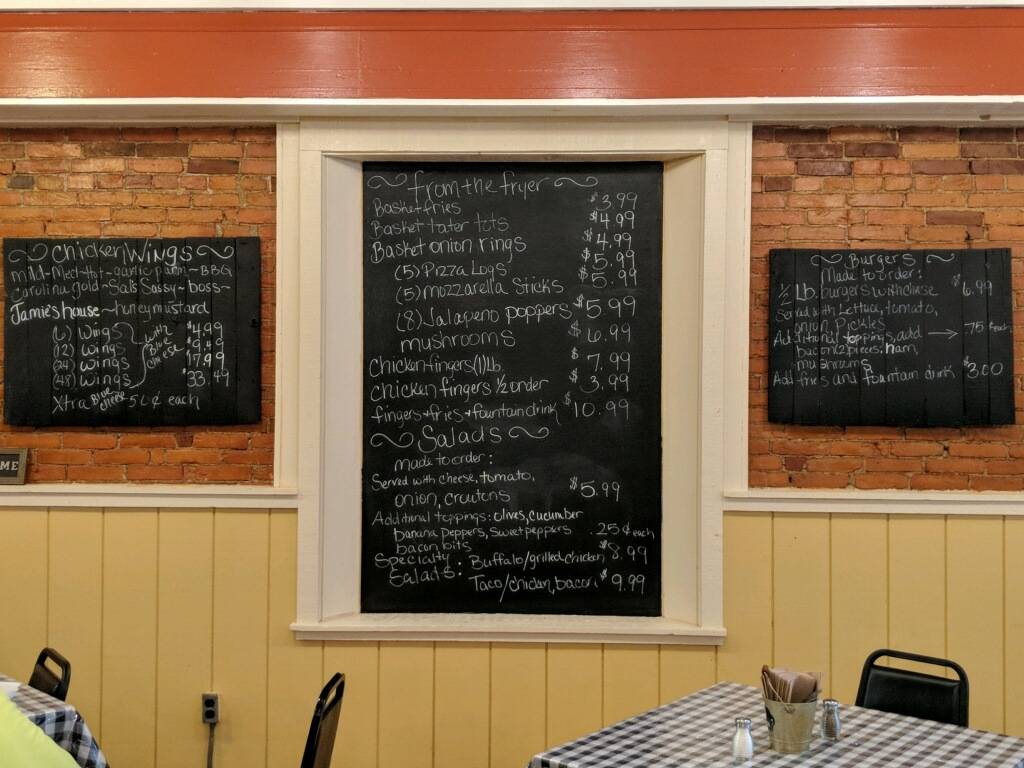 Chicken Wings
mild-Med-Hot-garlic parm-BBQ
carolina gold-Sals Sassy-boss-
Jamie's house-honey mustard
(6) Wings $4.99
(12) Wings $9.49
(24) Wings 17.99
(48) Wings $33.49
with Blue cheese
Xtra Blue cheese 50¢ each
ME
from the fryer
Basket fries $3.99
Basket tater tots $4.99
Basket onion rings $4.99
(5) Pizza Logs $5.99
(5) mozzarella Sticks $5.99
(8) Jalapeno poppers $5.99
mushrooms $6.99
Chicken fingers (1) lb. $7.99
Chicken fingers ½ order $3.99
fingers+fries+fountain drink $10.99
Salads
made to order:
Served with cheese, tomato,
onion, croutons $5.99
Additional toppings: olives, cucumber
banana peppers, sweet peppers .25¢ each
bacon bits
Specialty Salads: Buffalo/grilled chicken $8.99
Taco/chicken, bacon, $9.99
Burgers
Made to order:
½ Lb. burgers with cheese $6.99
Served with Lettuce, tomato,
onion, Pickles
Additional toppings, add → .75 each
bacon (2) pieces, ham,
mushrooms
Add fries and fountain drink $3.00